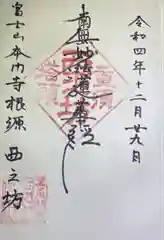 令和四年十二月廿九日
南無妙法蓮華経
富士山本門寺根源 西之坊